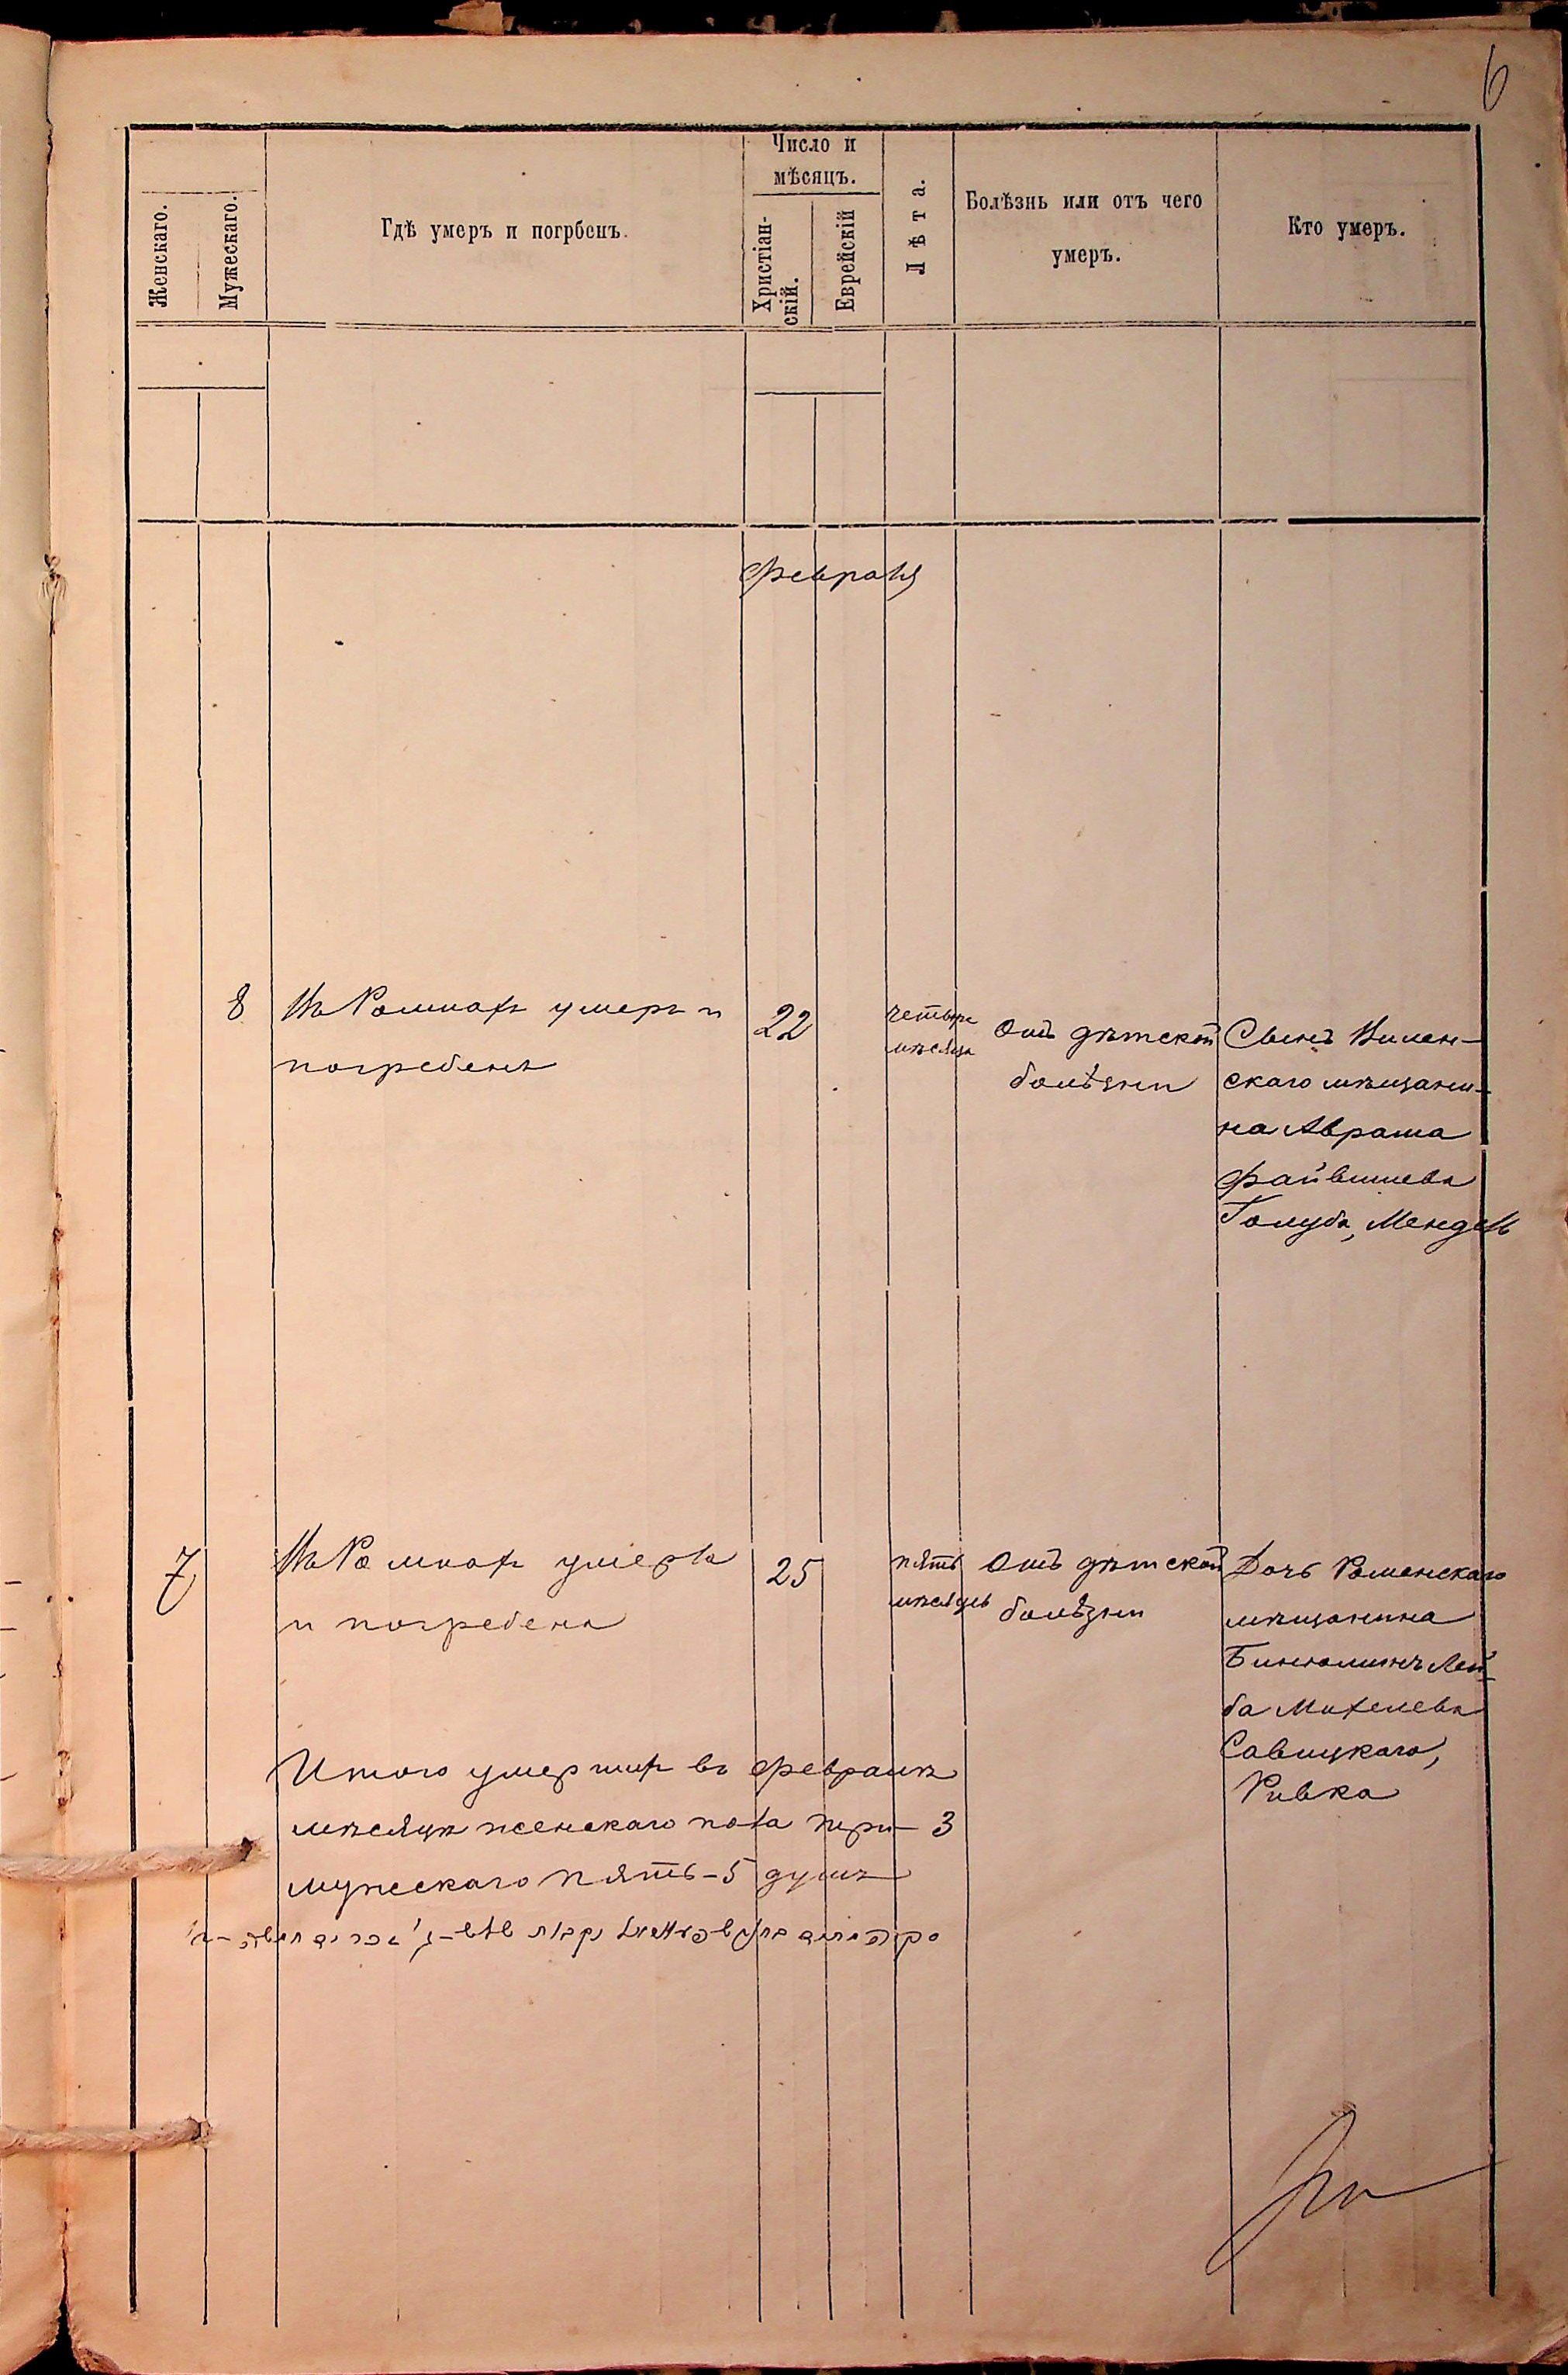 6
Женскаго.
Мужескаго.
Гдѣ умеръ и погрбенъ.
Число и
мѣсяцъ.
Христіан-
скій.
Еврейскій
Лѣта.
Болѣзнь или отъ чего
умеръ.
Кто умеръ.
Февраля
8
Въ Ромнахъ умеръ и
погребенъ
22
четыре
мѣсяца
Отъ дѣтской
болѣзни
Сынъ Вилен-
скаго мѣщани-
на Абрама
Файвишева
Голуба, Мендель
7
Въ Ромнахъ умерла
и погребена
25
пять
мѣсяцевъ
Отъ дѣтской
болѣзни
Дочь Роменскаго
мѣщанина
Биньоминъ Лей-
ба Михелева
Савицкаго,
Ривка
Итого умершихъ въ Февралѣ
мѣсяцѣ женскаго пола три - 3
мужескаго пять - 5 душъ